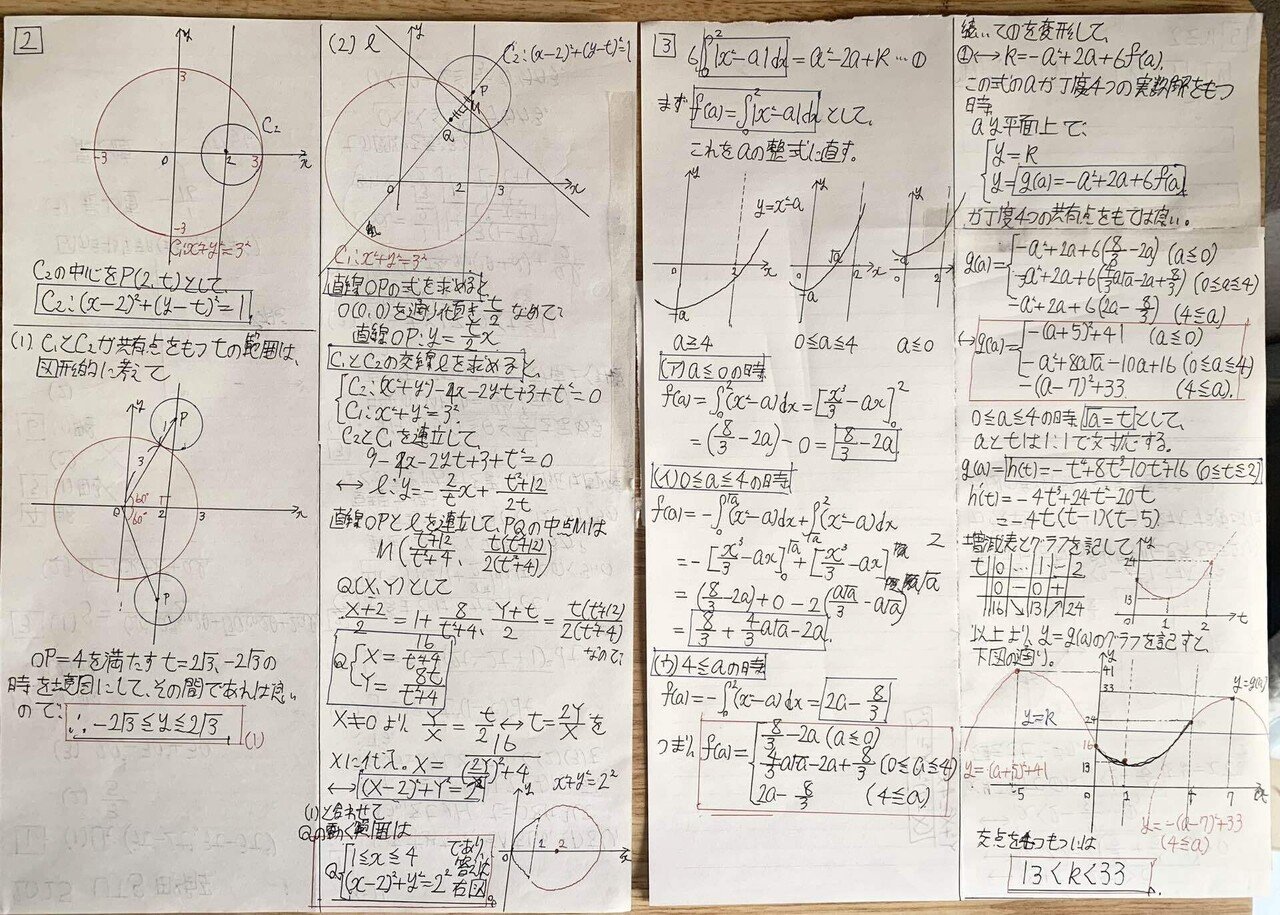 2
y
3
C₂
-3
0
2
3
x
-3
C₁: x²+y²=3²
C₂の中心をP(2,t)として、
C₂:(x-2)²+(y-t)²=1
(1) C₁とC₂が共有点をもつtの範囲は、
図形的に考えて
y
P
1
3
60°
60°
0
2
3
x
P
OP=4を満たすt=2√3,-2√3の
時を境目にして、その間であれば良い
ので、
∴ -2√3≦y≦2√3
(1)
(2) l
y
C₂:(x-2)²+(y-t)²=1
P
M
Q
0
2
3
x
C₁:x²+y²=3²
直線OPの式を求めると、
O(0,0)を通り傾きt/2なので、
直線OP:y=t/2 x
C₁とC₂の交線lを求めると、
C₂:(x²+y²)-4x-2yt+3+t²=0
C₁:x²+y²=3²
C₂とC₁を連立して、
9-4x-2yt+3+t²=0
↔ l:y=-2/t x+(t²+12)/2t
直線OPとlを連立して、PQの中点Mは
M((t²+12)/(t²+4), t(t²+12)/2(t²+4))
Q(X,Y)として
(X+2)/2=1+8/(t²+4)、(Y+t)/2=t(t²+12)/2(t²+4)
なので、
Q{X=16/(t²+4)
Y=8t/(t²+4)
X≠0より Y/X=t/2↔t=2Y/Xを
Xに代入。X=16/((2Y/X)²+4)
↔(X-2)²+Y²=2²
(1)と合わせて
Qの動く範囲は
Q{1≦x≦4
(x-2)²+y²=2²
であり、答えは右図
x²+y²=2²
y
0
1
2
x
3
6∫₀²|x²-a|dx=a²-2a+k…①
まず f(a)=∫₀²|x²-a|dxとして、
これをaの整式に直す。
y
y=x²-a
0
2
x
-a
y
√a
0
2
x
-a
y
-a
0
2
x
a≧4
0≦a≦4
a≦0
(ア)a≦0の時
f(a)=∫₀²(x²-a)dx=[x³/3-ax]₀²
=(8/3-2a)-0=8/3-2a
(イ)0≦a≦4の時
f(a)=-∫₀^√a(x²-a)dx+∫_√a²(x²-a)dx
=-[x³/3-ax]₀^√a+[x³/3-ax]_√a²
=(8/3-2a)+0-2(a√a/3-a√a)
=8/3+4/3a√a-2a
(ウ)4≦aの時
f(a)=-∫₀²(x²-a)dx=2a-8/3
つまり f(a)={8/3-2a (a≦0)
4/3a√a-2a+8/3 (0≦a≦4)
2a-8/3 (4≦a)
続いて①を変形して、
①↔k=-a²+2a+6f(a)
この式のaが丁度4つの実数解をもつ
時、
ay平面上で、
{y=k
y=g(a)=-a²+2a+6f(a)
が丁度4つの共有点をもてば良い。
g(a)={-a²+2a+6(8/3-2a) (a≦0)
-a²+2a+6(4/3a√a-2a+8/3) (0≦a≦4)
-a²+2a+6(2a-8/3) (4≦a)
↔g(a)={-(a+5)²+41 (a≦0)
-a²+8a√a-10a+16 (0≦a≦4)
=(a-7)²+33 (4≦a)
0≦a≦4の時 √a=tとして、
aとtは1:1で対応する。
g(a)=h(t)=-t⁴+8t³-10t²+16 (0≦t≦2)
h'(t)=-4t³+24t²-20t
=-4t(t-1)(t-5)
増減表とグラフを記して
t|0|…|1|…|2
|0|-|0|+|
|16|↘|13|↗|24
y
24
13
1
2
t
以上より、y=g(a)のグラフを記すと
下図の通り。
y
41
33
y=g(a)
24
y=k
16
13
y=-(a+5)²+41
-5
1
4
7
a
y=-(a-7)²+33
(4≦a)
交点を4つもつには
13<k<33